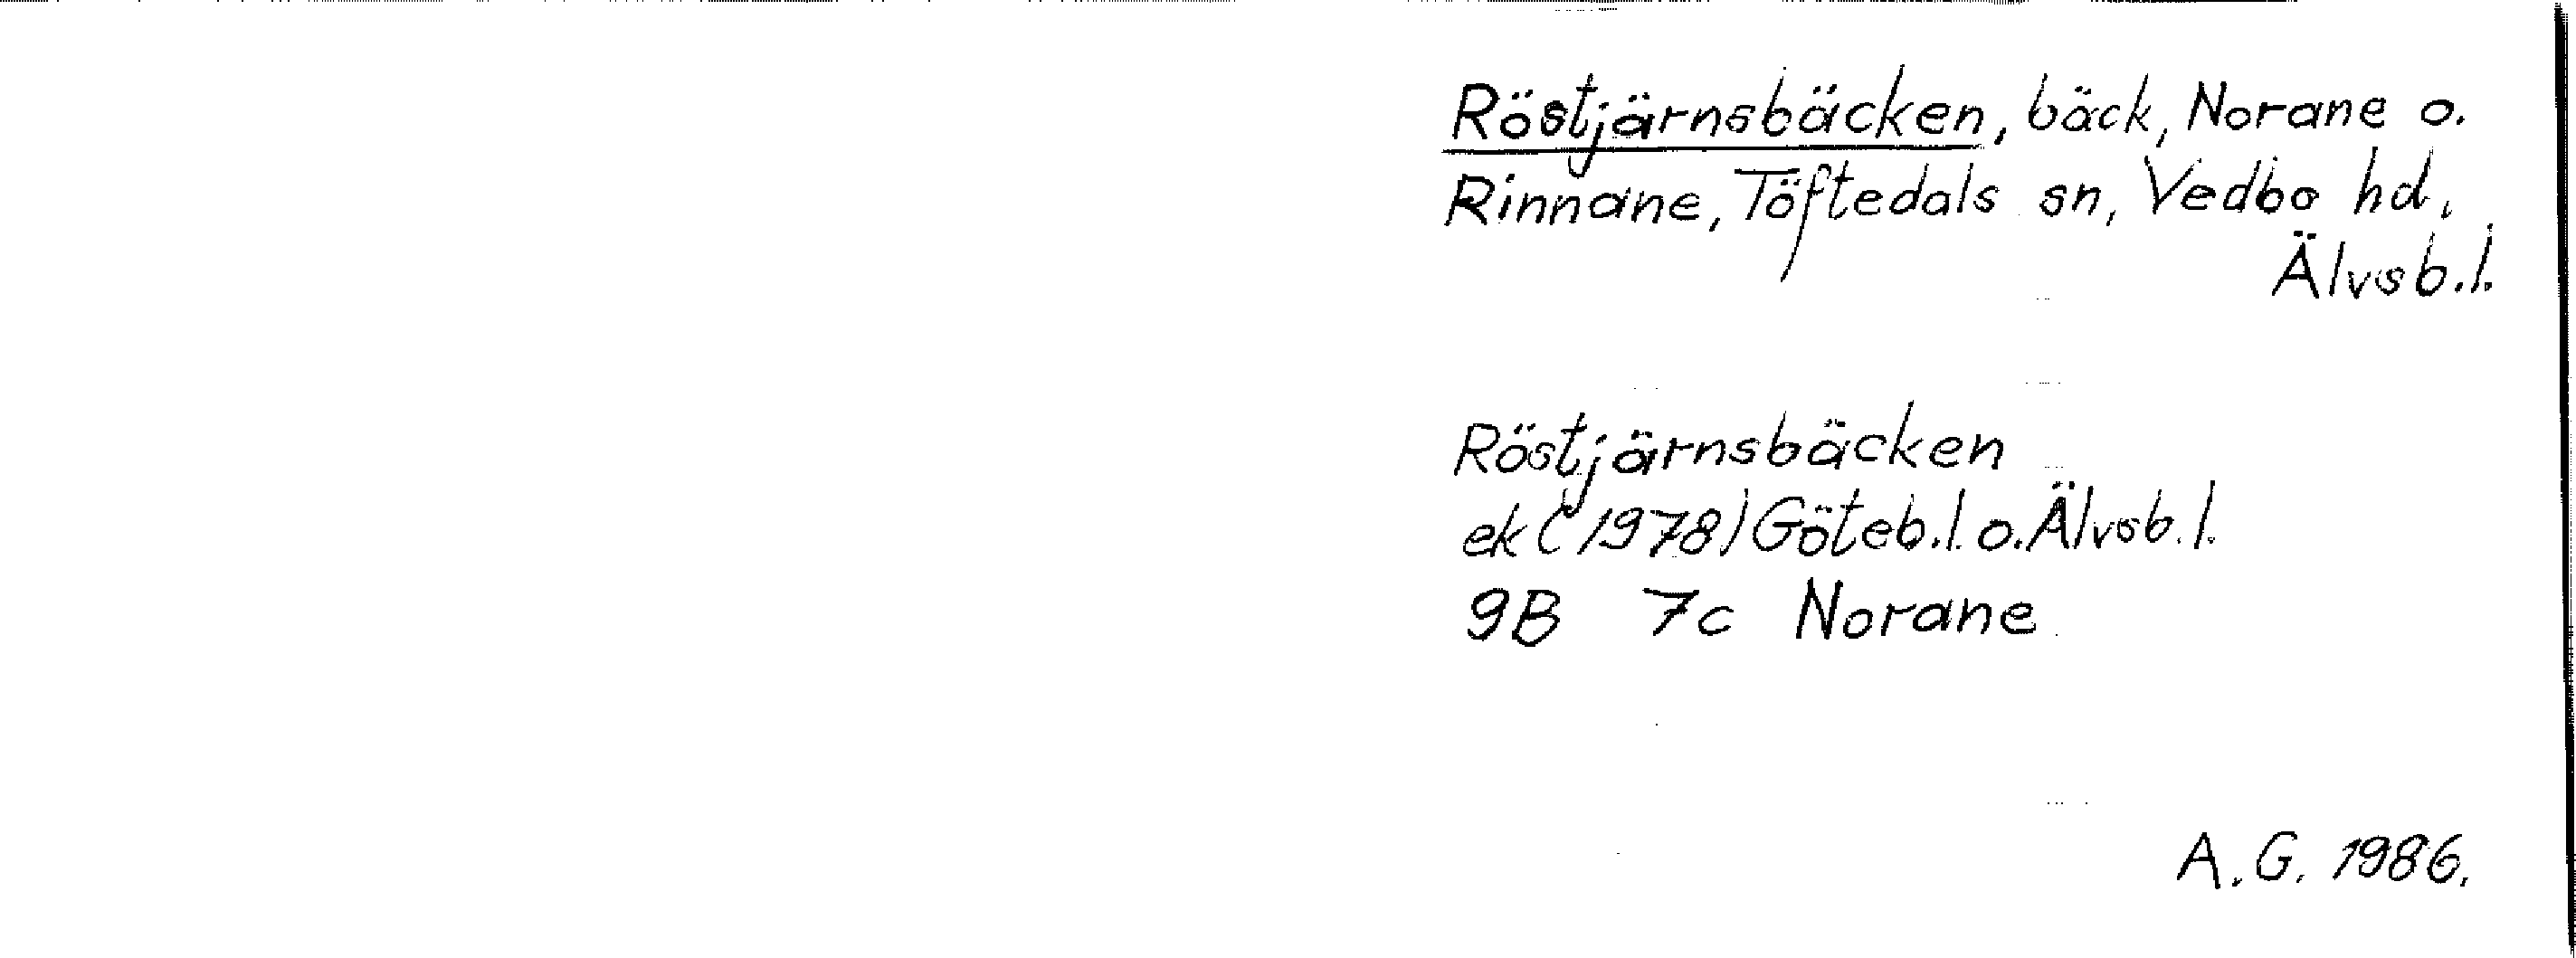 Röstjärnsbäcken, bäck, Norane o.
Rinnane, Töftedals sn, Vedbo hd,
Älvsb.l.
Röstjärnsbäcken
ek (1978) Göteb.l. o. Älvsb.l.
9B 7c Norane
A.G. 1986.